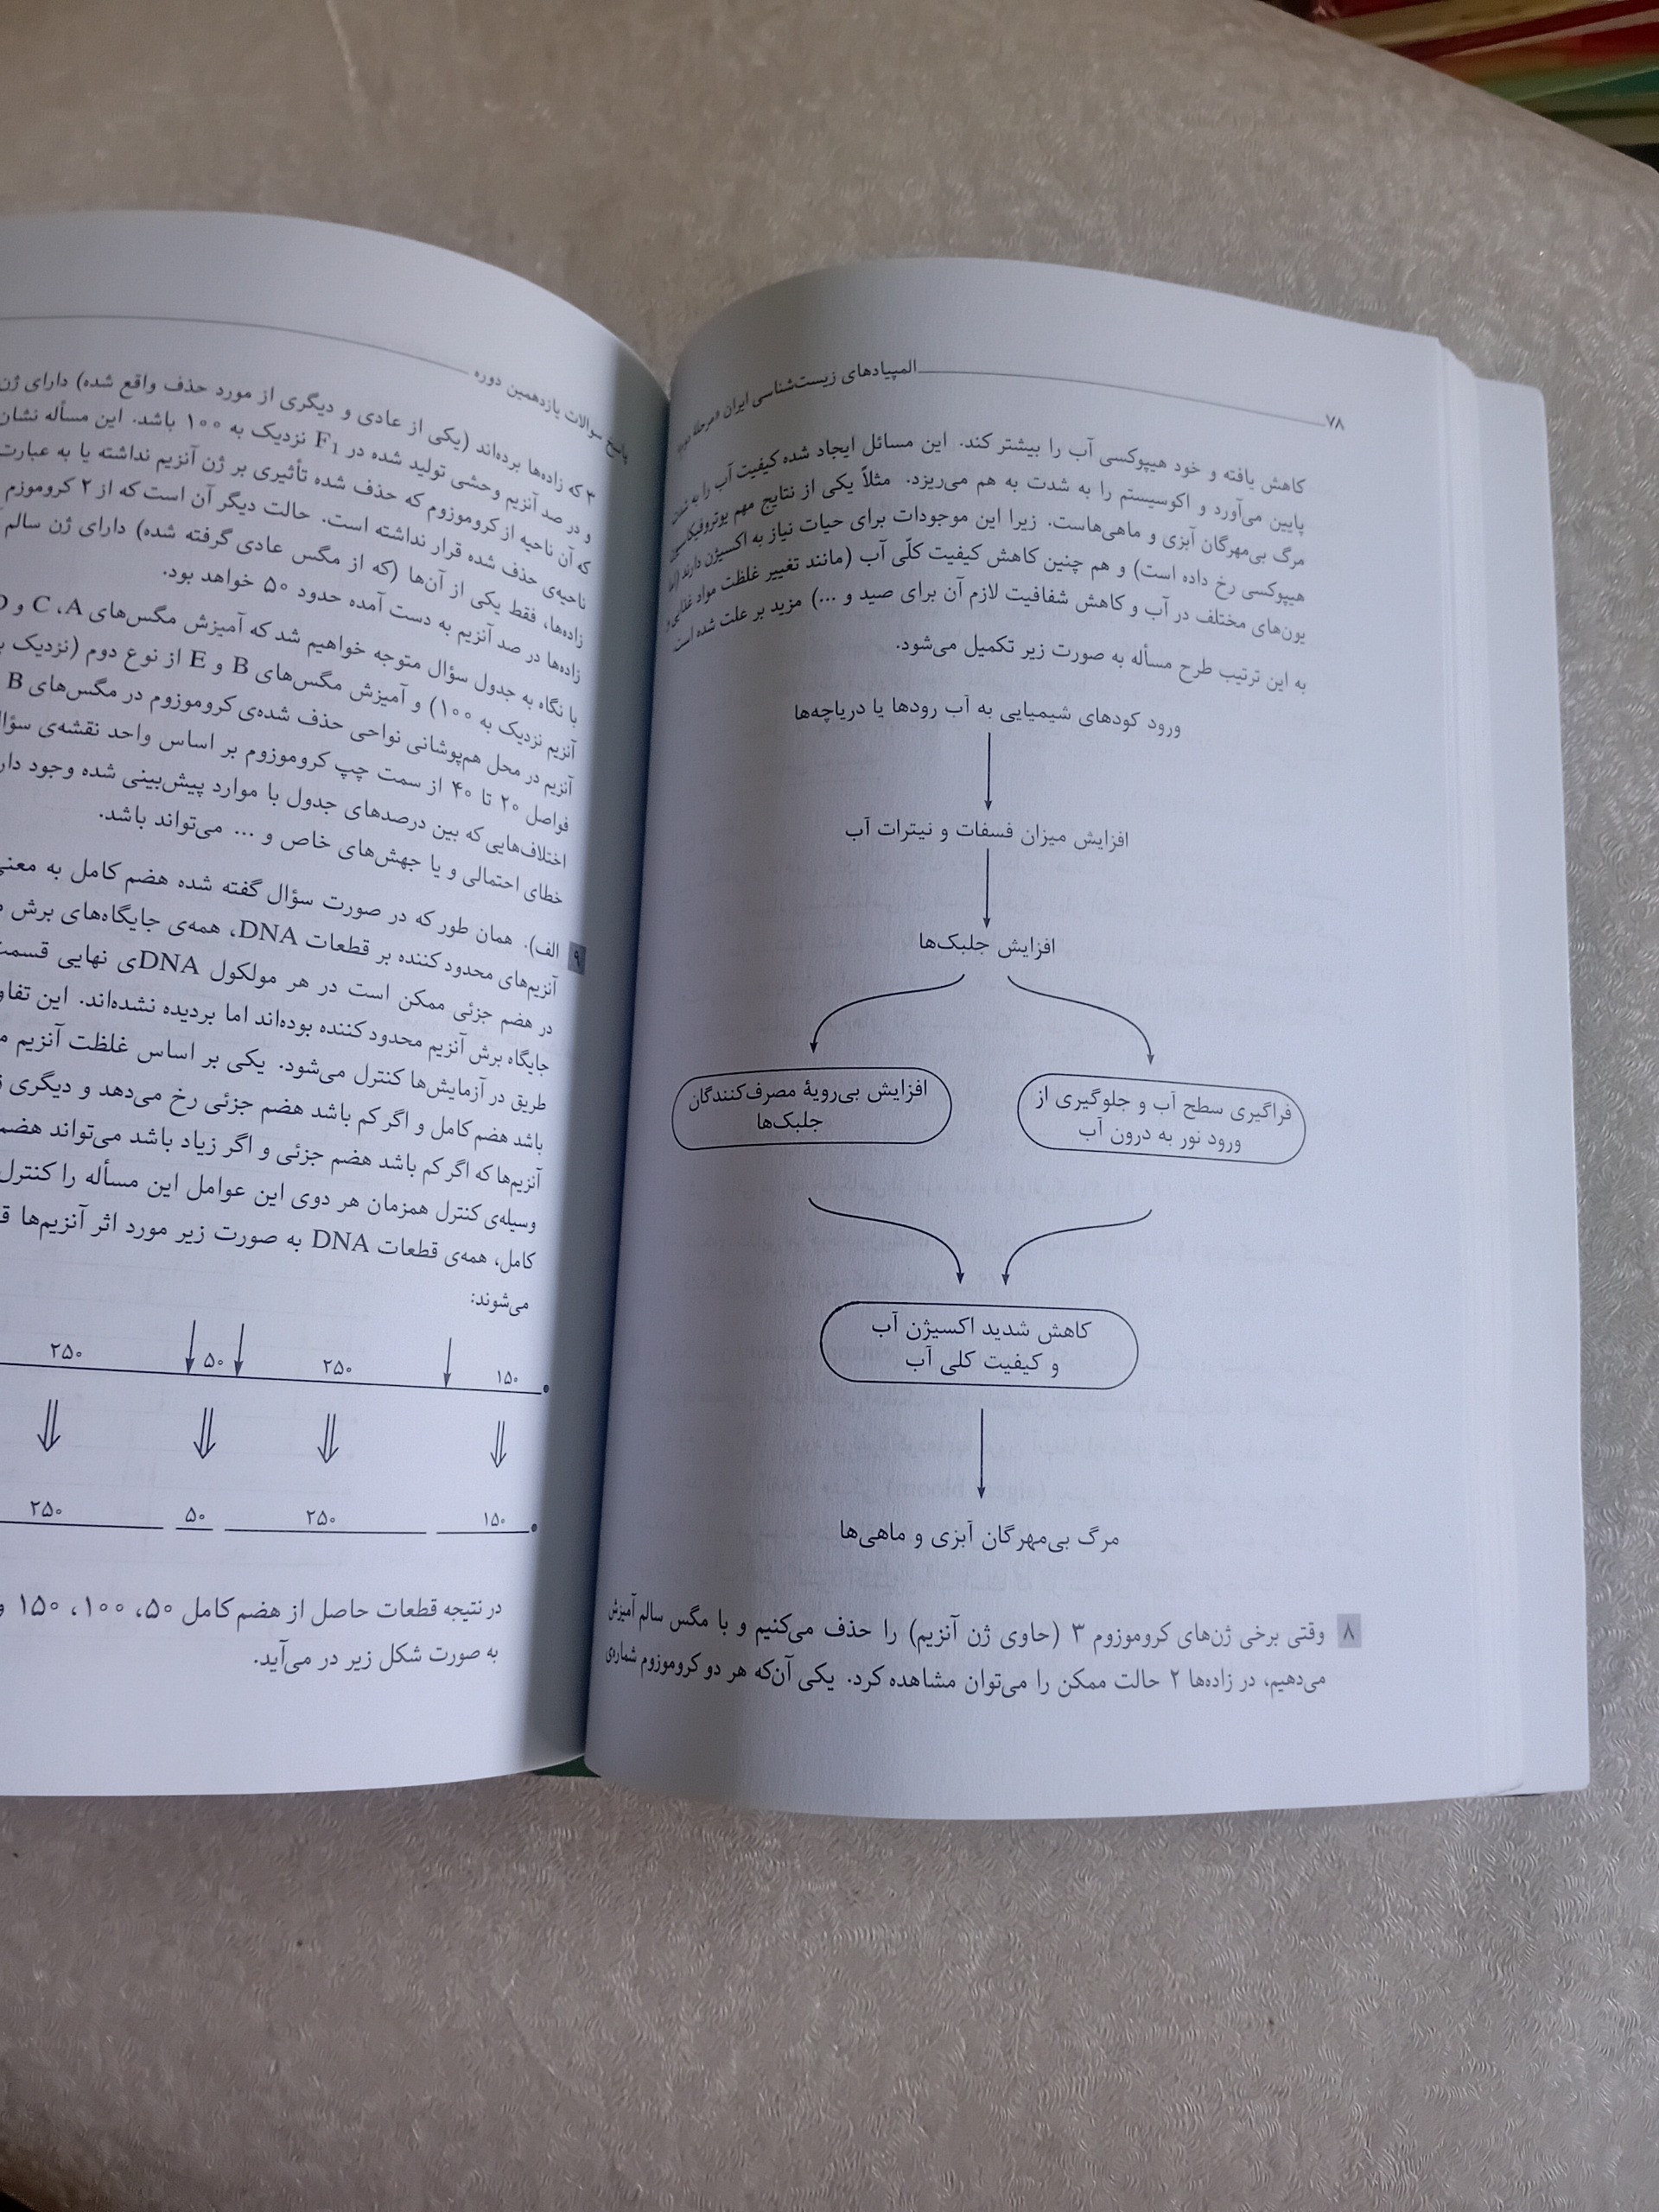 ۷۸
المپیادهای زیست‌شناسی ایران «مرحلهٔ دوم»
کاهش یافته و خود هیپوکسی آب را بیشتر کند. این مسائل ایجاد شده کیفیت آب را به شدت
پایین می‌آورد و اکوسیستم را به شدت به هم می‌ریزد. مثلاً یکی از نتایج مهم یوتروفیکاسیون
مرگ بی‌مهرگان آبزی و ماهی‌هاست. زیرا این موجودات برای حیات نیاز به اکسیژن دارند
هیپوکسی رخ داده است) و هم چنین کاهش کیفیت کلّی آب (مانند تغییر غلظت مواد غذایی
یون‌های مختلف در آب و کاهش شفافیت لازم آن برای صید و ...) مزید بر علت شده است.
به این ترتیب طرح مسأله به صورت زیر تکمیل می‌شود.
ورود کودهای شیمیایی به آب رودها یا دریاچه‌ها
افزایش میزان فسفات و نیترات آب
افزایش جلبک‌ها
فراگیری سطح آب و جلوگیری از
ورود نور به درون آب
افزایش بی‌رویهٔ مصرف‌کنندگان
جلبک‌ها
کاهش شدید اکسیژن آب
و کیفیت کلی آب
مرگ بی‌مهرگان آبزی و ماهی‌ها
۸ وقتی برخی ژن‌های کروموزوم ۳ (حاوی ژن آنزیم) را حذف می‌کنیم و با مگس سالم آمیزش
می‌دهیم، در زاده‌ها ۲ حالت ممکن را می‌توان مشاهده کرد. یکی آن‌که هر دو کروموزوم شماره‌ی
پاسخ سوالات یازدهمین دوره
۳ که زاده‌ها برده‌اند (یکی از عادی و دیگری از مورد حذف واقع شده) دارای ژن
و در صد آنزیم وحشی تولید شده در F1 نزدیک به ۱۰۰ باشد. این مسأله نشان
که آن ناحیه از کروموزوم که حذف شده تأثیری بر ژن آنزیم نداشته یا به عبارت
ناحیه‌ی حذف شده قرار نداشته است. حالت دیگر آن است که از ۲ کروموزم
زاده‌ها، فقط یکی از آن‌ها (که از مگس عادی گرفته شده) دارای ژن سالم
زاده‌ها در صد آنزیم به دست آمده حدود ۵۰ خواهد بود.
با نگاه به جدول سؤال متوجه خواهیم شد که آمیزش مگس‌های A، C و D
آنزیم نزدیک به ۱۰۰) و آمیزش مگس‌های B و E از نوع دوم (نزدیک
آنزیم در محل هم‌پوشانی نواحی حذف شده‌ی کروموزوم در مگس‌های B
فواصل ۲۰ تا ۴۰ از سمت چپ کروموزوم بر اساس واحد نقشه‌ی
اختلاف‌هایی که بین درصدهای جدول با موارد پیش‌بینی شده وجود
خطای احتمالی و یا جهش‌های خاص و ... می‌تواند باشد.
۹ الف). همان طور که در صورت سؤال گفته شده هضم کامل به
آنزیم‌های محدود کننده بر قطعات DNA، همه‌ی جایگاه‌های برش
در هضم جزئی ممکن است در هر مولکول DNAی نهایی قسمت
جایگاه برش آنزیم محدود کننده بوده‌اند اما بردیده نشده‌اند. این
طریق در آزمایش‌ها کنترل می‌شود. یکی بر اساس غلظت آنزیم
باشد هضم کامل و اگر کم باشد هضم جزئی رخ می‌دهد و دیگری
آنزیم‌ها که اگر کم باشد هضم جزئی و اگر زیاد باشد می‌تواند هضم
وسیله‌ی کنترل همزمان هر دوی این عوامل این مسأله را کنترل
کامل، همه‌ی قطعات DNA به صورت زیر مورد اثر آنزیم‌ها
می‌شوند:
۲۵۰ ۵۰ ۲۵۰ ۱۵۰
۲۵۰ ۵۰ ۲۵۰ ۱۵۰
در نتیجه قطعات حاصل از هضم کامل ۵۰، ۱۰۰، ۱۵۰ و
به صورت شکل زیر در می‌آید.